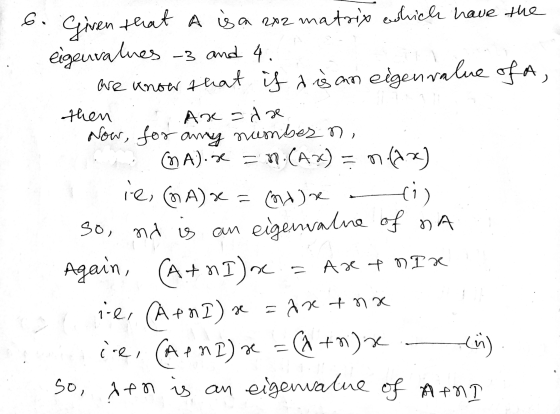 6. Given that A is a 2x2 matrix which have the
eigenvalues -3 and 4.
We know that if λ is an eigenvalue of A,
then Ax = λx
Now, for any number n,
(nA).x = n.(Ax) = n(λx)
i.e, (nA)x = (nλ)x —(i)
So, nλ is an eigenvalue of nA
Again, (A+nI)x = Ax + nIx
i.e, (A+nI)x = λx + nx
i.e, (A+nI)x = (λ+n)x —(ii)
So, λ+n is an eigenvalue of A+nI